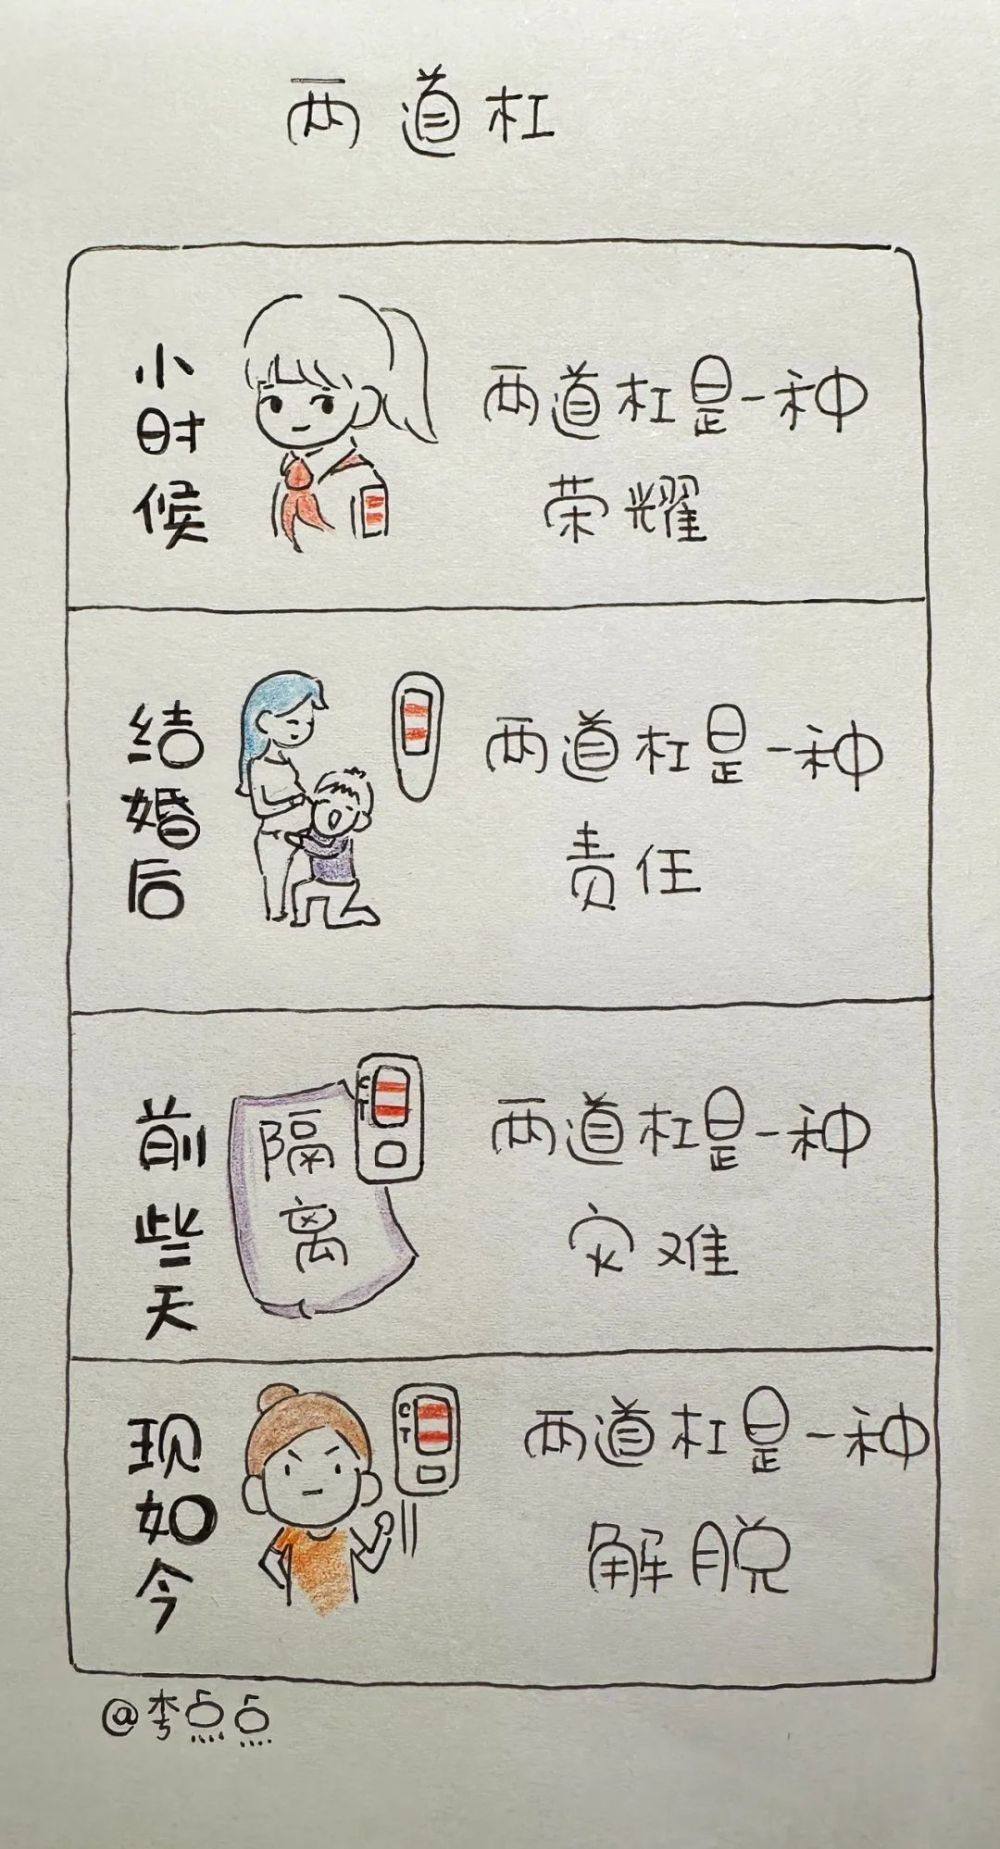 两道杠
小时候
两道杠是一种
荣耀
结婚后
两道杠是一种
责任
前些天
隔离
C
T
两道杠是一种
灾难
现如今
C
T
两道杠是一种
解脱
@李点点